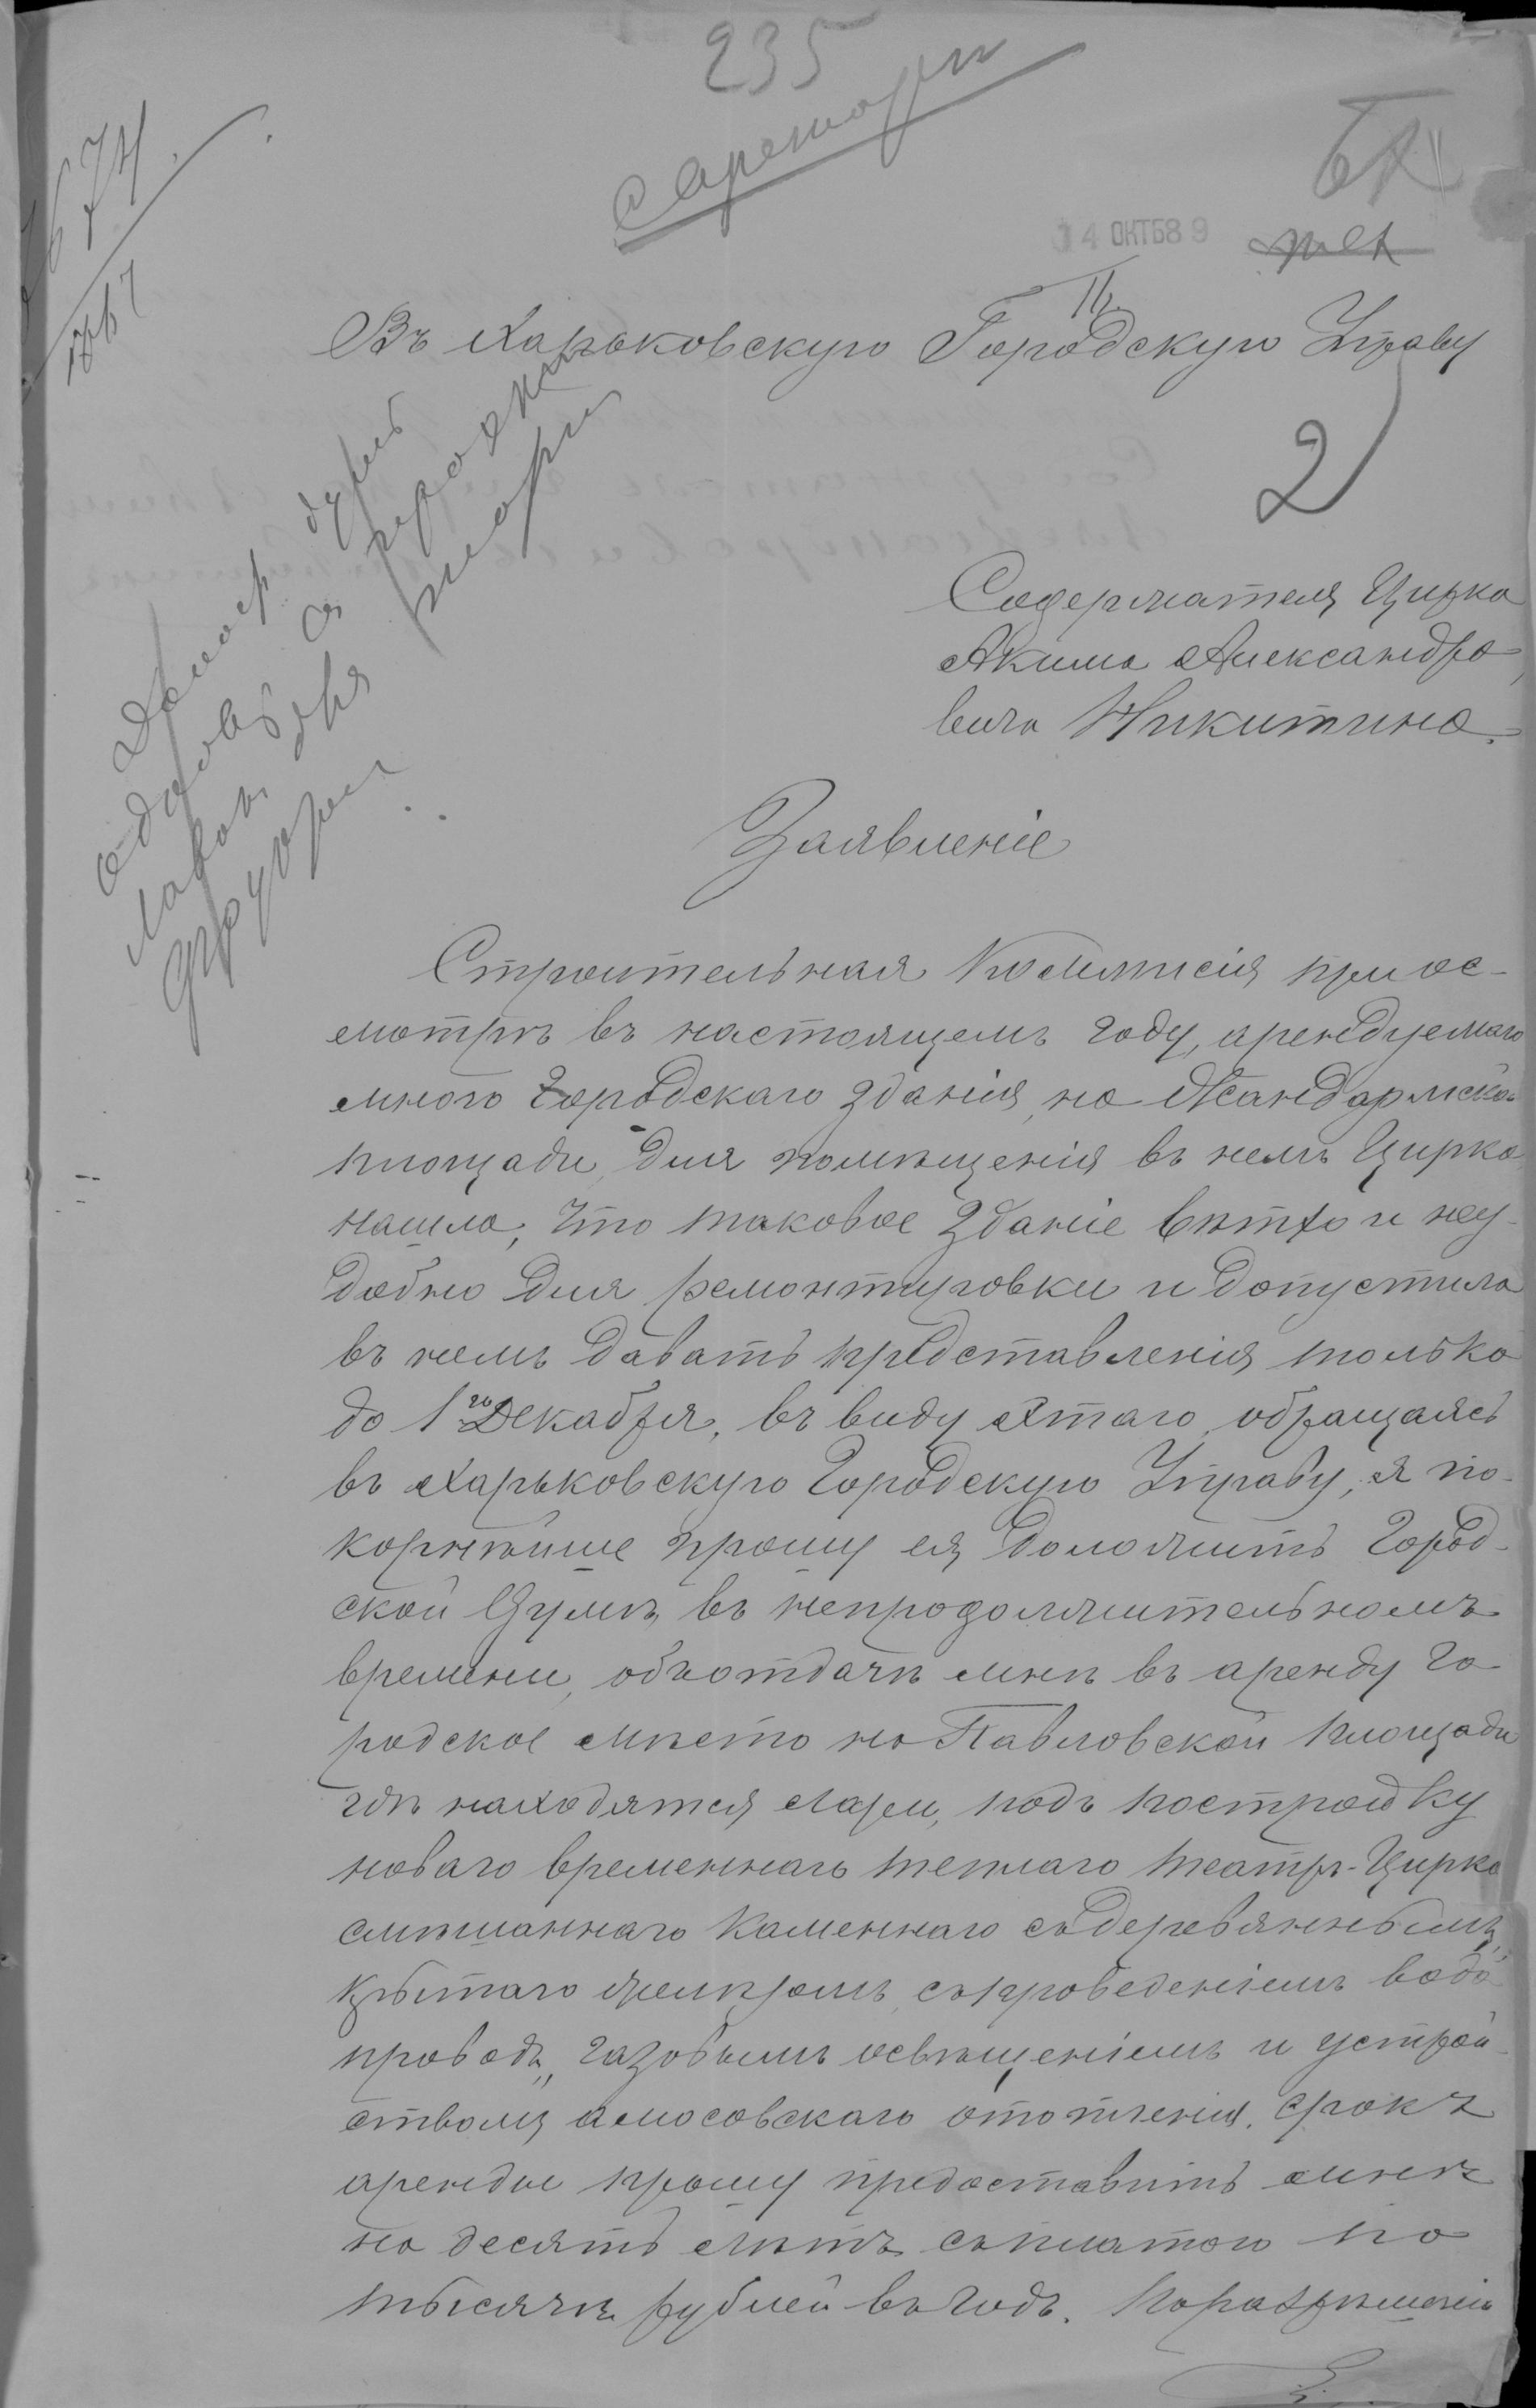 235
14 ОКТ 89
Въ Харьковскую Городскую Управу
2
Содержателя Цирка
Акима Александро-
вича Никитина.
Заявленіе
Строительная Коммисія при ос-
мотрѣ въ настоящемъ году, арендуемаго
мною Городскаго зданія, на Жандармской
площади, для помѣщенія въ немъ Цирка
нашла, что таковое зданіе ветхо и неу-
добно для ремонтировки и допустила
въ немъ давать представленія только
до 1го Декабря, въ виду этаго, обращаясь
въ Харьковскую Городскую Управу, я по-
корнѣйше прошу ея доложить Город-
ской Думѣ, въ непродолжительномъ
времени, объ отдачѣ мнѣ въ аренду Го-
родское мѣсто на Павловской площади
гдѣ находятся лари, подъ постройку
новаго временнаго теплаго театръ-Цирка
смѣшаннаго каменнаго съ деревяннымъ,
крытаго желѣзомъ, съ проведеніемъ водо-
провода, газовымъ освѣщеніемъ и устрой-
ствомъ амосовскаго отопленія. Срокъ
аренды прошу предоставить мнѣ
на десять лѣтъ съ платою по
тысячи рублей въ годъ. По разрѣшеніи